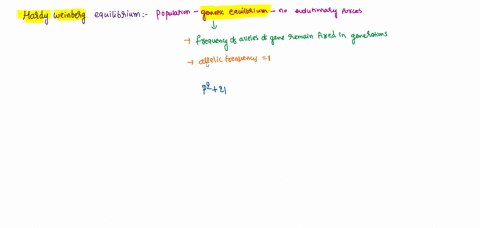 Hardy weinberg equilibrium:- Population - genetic equilibrium - no evolutionary forces
↓
→ frequency of alleles of gene remain fixed in generations
→ allelic frequency = 1
p² + 2